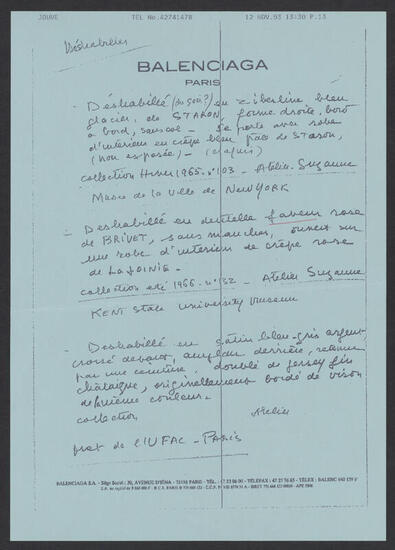 JOUVE TEL No.42741478 12 NOV.93 13:30 P.13
Déshabillés
BALENCIAGA
PARIS
- Déshabillé (du soir?) en ziberline bleu
glacier, de STARON, forme droite, bord
à bord, sans col - Se porte avec robe
d'intérieur en crêpe bleu de Staron,
(non exposée) -
collection Hiver 1965. n° 103 - Atelier Suzanne
Musée de la Ville de NEW YORK
- Déshabillé en dentelle faveur rose
de BRIVET, sans manches, ouvert sur
une robe d'intérieur de crêpe rose
de LAJOINIE -
collection été 1966. n° 132 - Atelier Suzanne
KENT State University Museum
- Déshabillé en satin bleu-gris argent,
croisé devant, ampleur derrière, retenue
par une couture. doublé de jersey gris
châtaigne, originellement bordé de vison
de même couleur -
collection Atelier
pret de l'UFAC - PARIS
BALENCIAGA S.A. - Siège Social : 10, AVENUE GEORGE V - 75116 PARIS